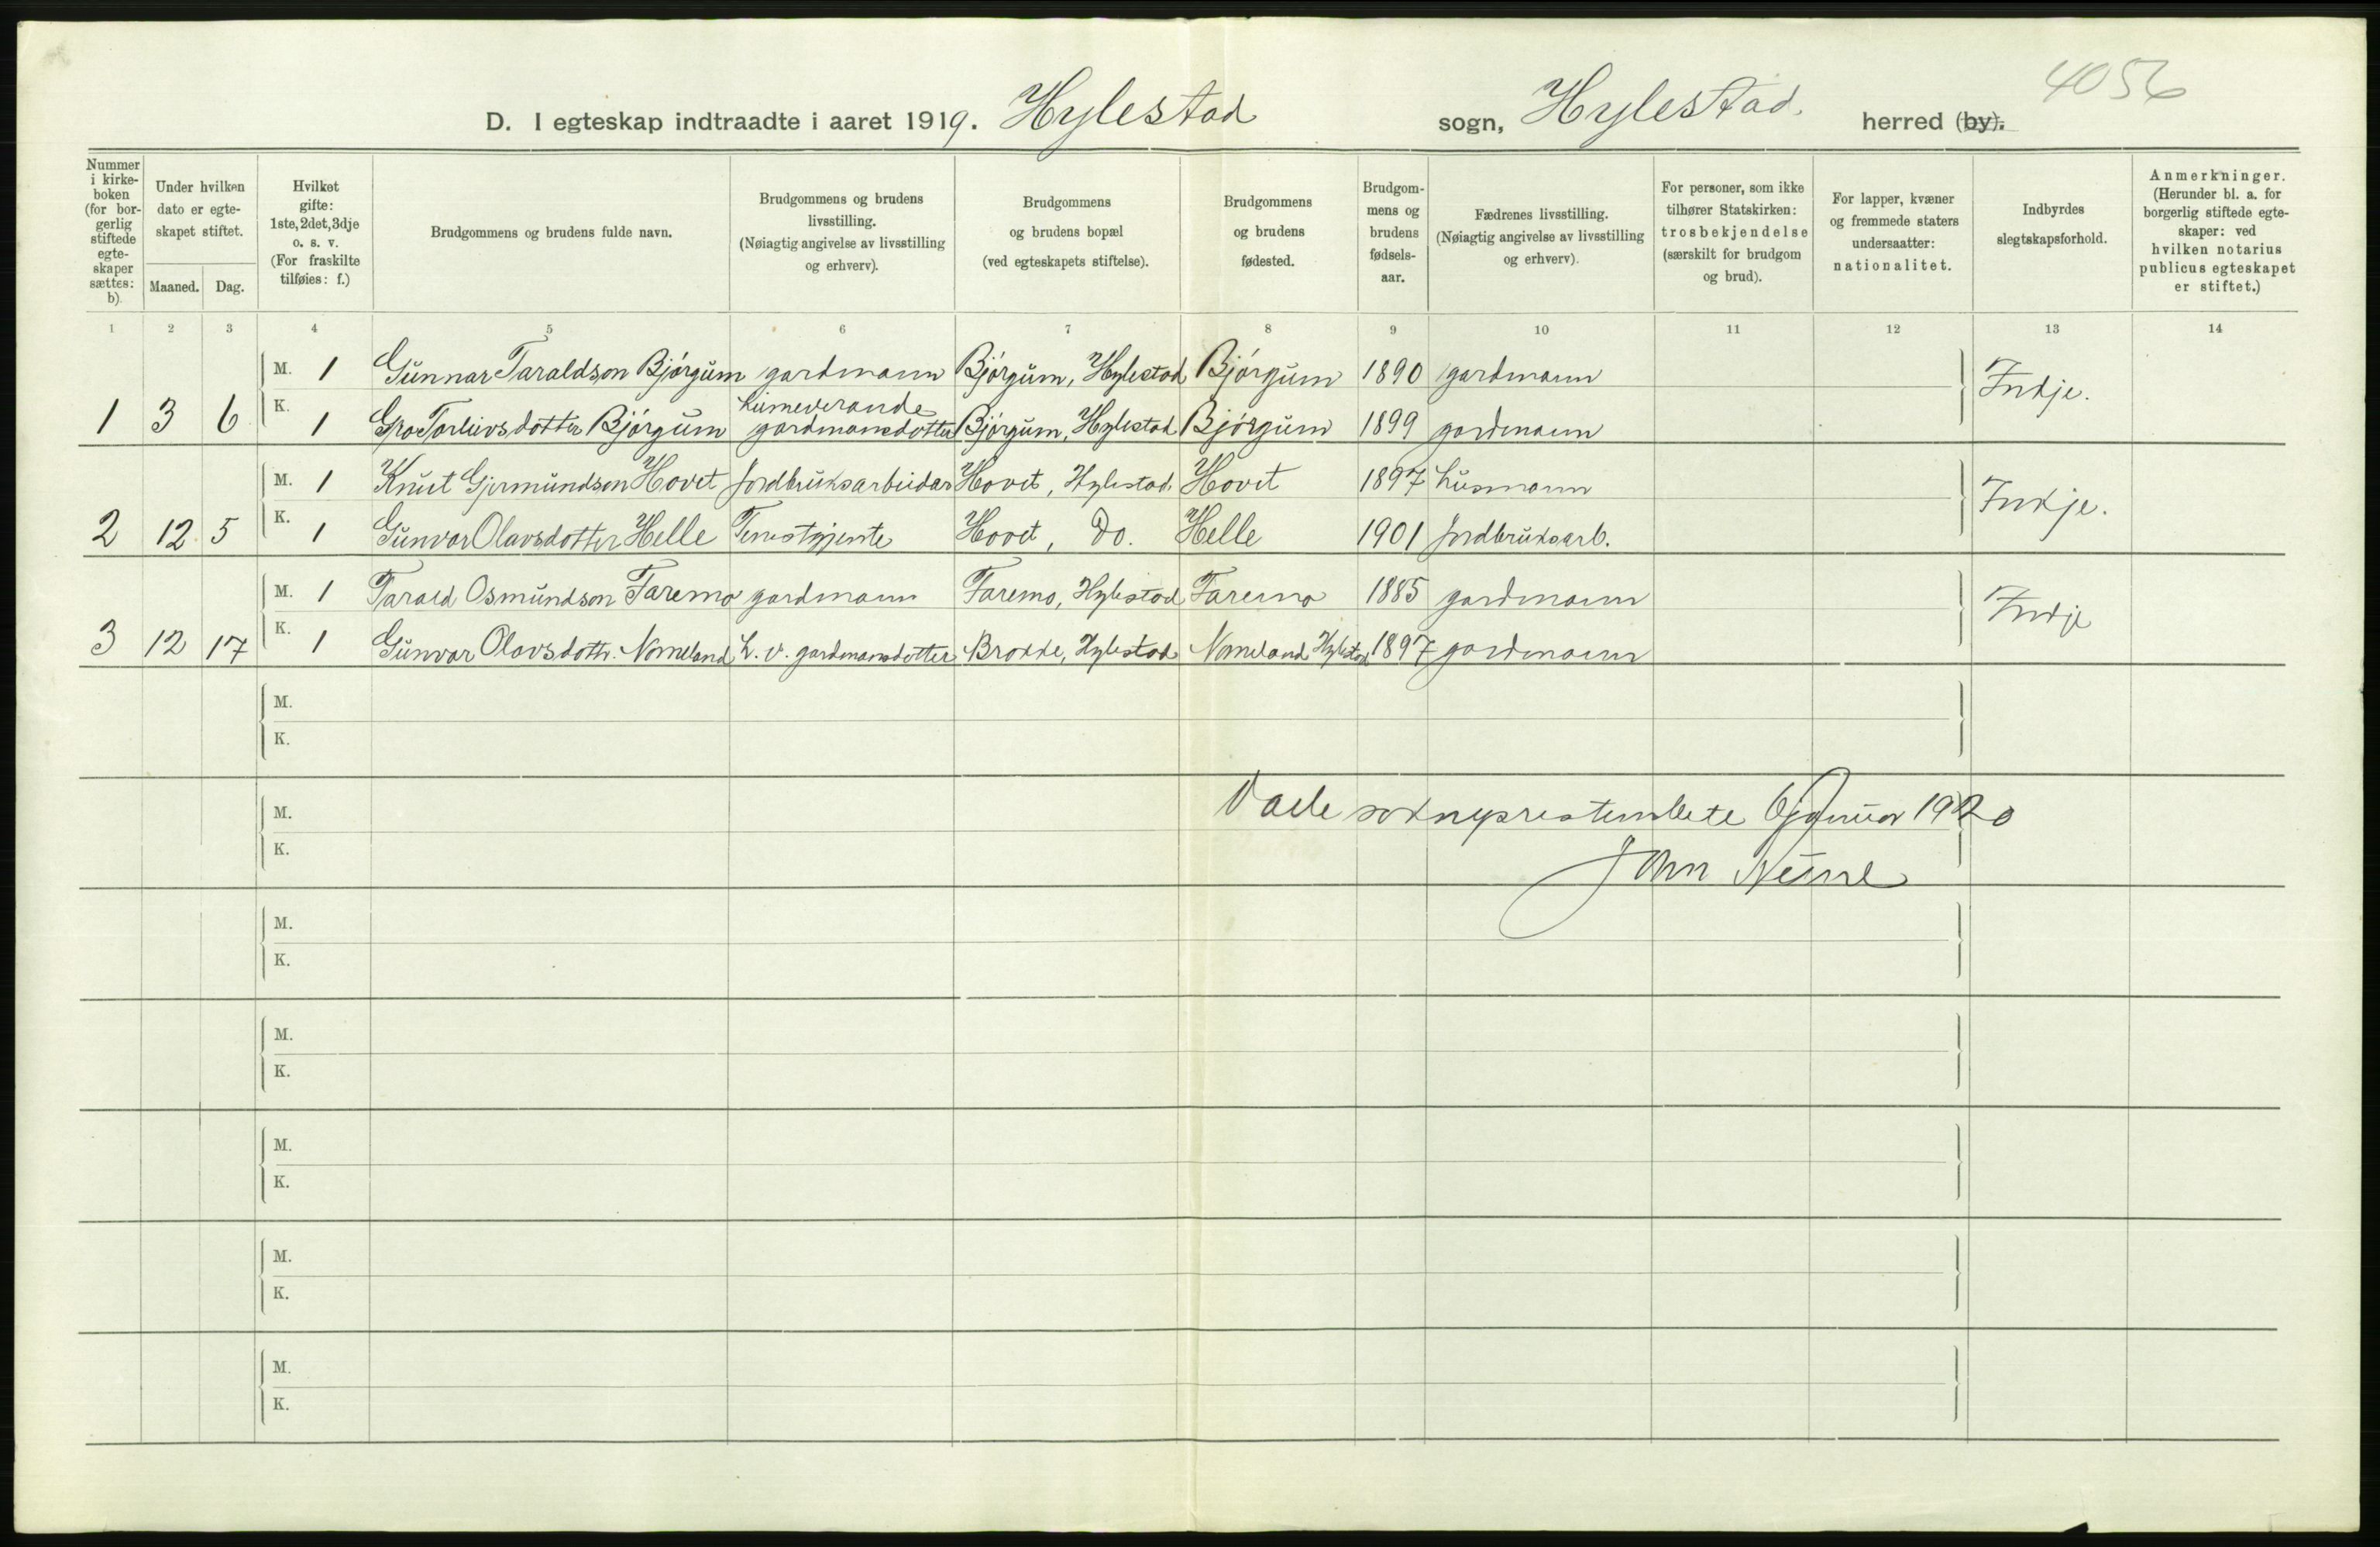 4056
D. I egteskap indtraadte i aaret 1919. Hylestad sogn, Hylestad. herred (by).
Nummer i kirke-boken (for bor-gerlig stiftede egte-skaper sættes: b).
Under hvilken dato er egte-skapet stiftet.
Maaned. Dag.
Hvilket gifte: 1ste, 2det, 3dje o. s. v. (For fraskilte tilføies: f.)
Brudgommens og brudens fulde navn.
Brudgommens og brudens livsstilling. (Nøiagtig angivelse av livsstilling og erhverv).
Brudgommens og brudens bopæl (ved egteskapets stiftelse).
Brudgommens og brudens fødested.
Brudgom-mens og brudens fødsels-aar.
Fædrenes livsstilling. (Nøiagtig angivelse av livsstilling og erhverv).
For personer, som ikke tilhører Statskirken: trosbekjendelse (særskilt for brudgom og brud).
For lapper, kvæner og fremmede staters undersaatter: nationalitet.
Indbyrdes slegtskapsforhold.
Anmerkninger. (Herunder bl. a. for borgerlig stiftede egte-skaper: ved hvilken notarius publicus egteskapet er stiftet.)
1 2 3 4 5 6 7 8 9 10 11 12 13 14
M. 1 Gunnar Taraldson Bjørgum gardmann Bjørgum, Hylestad Bjørgum 1890 gardmann Inkje.
1 3 6 K. 1 Gro Torleivsdotter Bjørgum heimeverande gardmansdotter Bjørgum, Hylestad Bjørgum 1899 gardmann
M. 1 Knut Gjermundson Hovet Jordbruksarbeidar Hovet, Hylestad. Hovet 1897 husmann Inkje.
2 12 5 K. 1 Gunvor Olavsdotter Helle Tenestgjente Hovet, Do. Helle 1901 Jordbruksarb.
M. 1 Tarald Osmundson Faremo gardmann Faremo, Hylestad Faremo 1885 gardmann Inkje
3 12 17 K. 1 Gunvor Olavsdottr. Nomeland h. v. gardmansdotter Brokke, Hylestad Nomeland Hylestad 1897 gardmann
M.
K.
M.
K.
Valle sokneprestembete 6 januar 1920
John
M.
K.
M.
K.
M.
K.
M.
K.
M.
K.